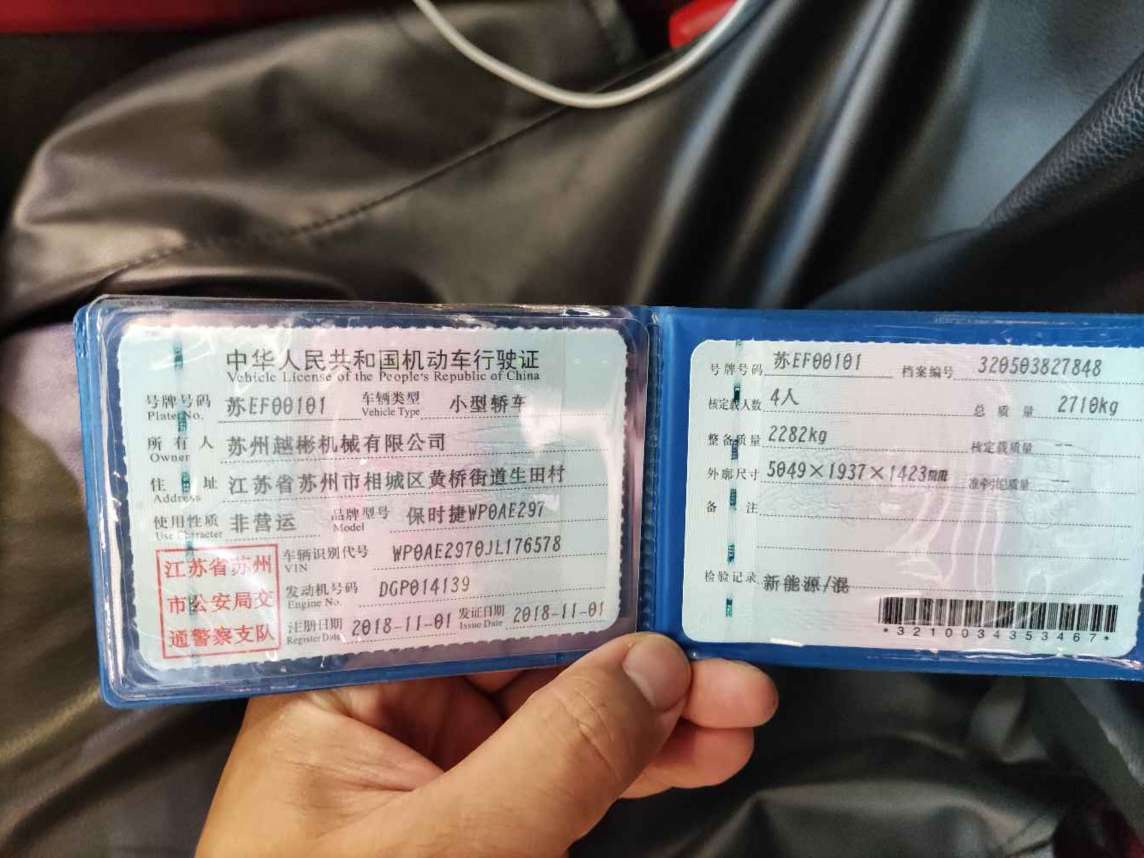 中华人民共和国机动车行驶证
Vehicle License of the People's Republic of China
号牌号码 苏EF00101 车辆类型 小型轿车
Plate No. Vehicle Type
所有人 苏州越彬机械有限公司
Owner
住址 江苏省苏州市相城区黄桥街道生田村
Address
使用性质 非营运 品牌型号 保时捷WP0AE297
Use Character Model
江苏省苏州
市公安局交
通警察支队
车辆识别代号 WP0AE2970JL176578
VIN
发动机号码 DGP014139
Engine No.
注册日期 2018-11-01 发证日期 2018-11-01
Register Date Issue Date
号牌号码 苏EF00101 档案编号 320503827848
核定载人数 4人 总质量 2710kg
整备质量 2282kg 核定载质量 --
外廓尺寸 5049×1937×1423mm 准牵引总质量 --
备注
检验记录 新能源/混
*3210034353467*